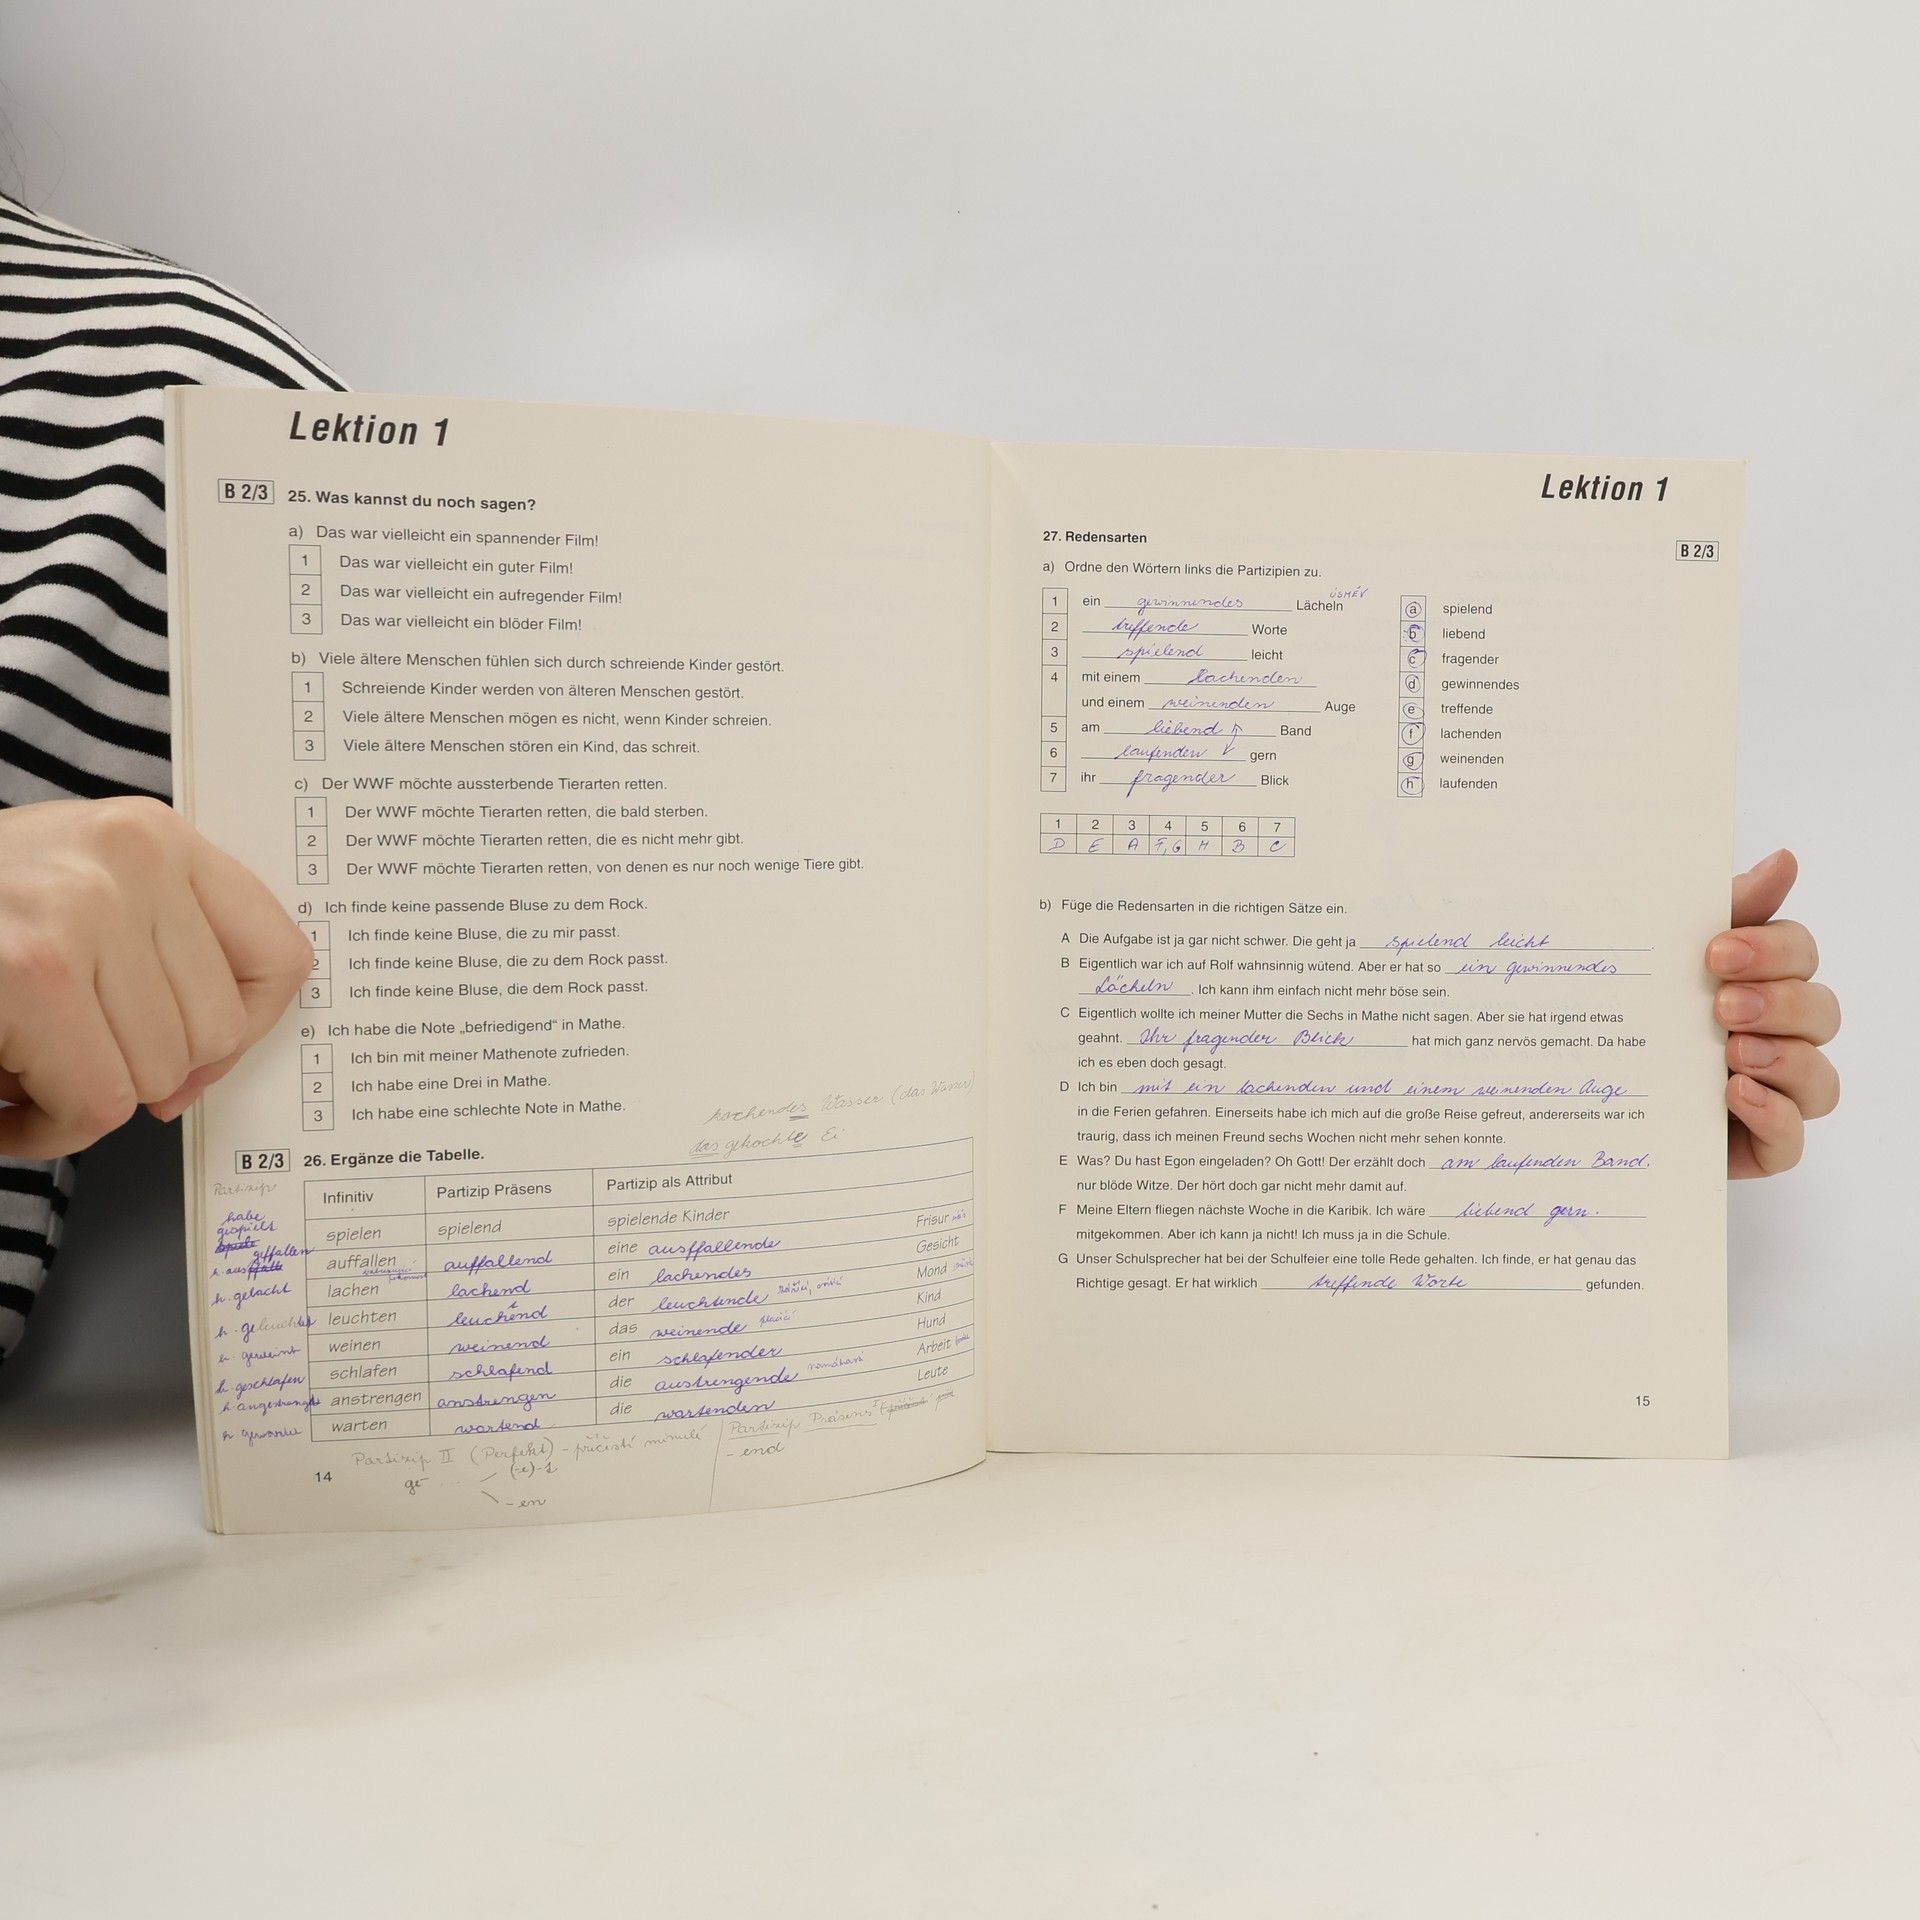 Lektion 1
B 2/3 25. Was kannst du noch sagen?
a) Das war vielleicht ein spannender Film!
1 Das war vielleicht ein guter Film!
2 Das war vielleicht ein aufregender Film!
3 Das war vielleicht ein blöder Film!
b) Viele ältere Menschen fühlen sich durch schreiende Kinder gestört.
1 Schreiende Kinder werden von älteren Menschen gestört.
2 Viele ältere Menschen mögen es nicht, wenn Kinder schreien.
3 Viele ältere Menschen stören ein Kind, das schreit.
c) Der WWF möchte aussterbende Tierarten retten.
1 Der WWF möchte Tierarten retten, die bald sterben.
2 Der WWF möchte Tierarten retten, die es nicht mehr gibt.
3 Der WWF möchte Tierarten retten, von denen es nur noch wenige Tiere gibt.
d) Ich finde keine passende Bluse zu dem Rock.
1 Ich finde keine Bluse, die zu mir passt.
2 Ich finde keine Bluse, die zu dem Rock passt.
3 Ich finde keine Bluse, die dem Rock passt.
e) Ich habe die Note „befriedigend“ in Mathe.
1 Ich bin mit meiner Mathenote zufrieden.
2 Ich habe eine Drei in Mathe.
3 Ich habe eine schlechte Note in Mathe.
kochendes Wasser (das Wasser)
das gekochte Ei
B 2/3 26. Ergänze die Tabelle.
Partizip
Infinitiv Partizip Präsens Partizip als Attribut
habe gespielt spielen spielend spielende Kinder
gefallen auffallen auffallend eine ausffallende Frisur
h. gelacht lachen lachend ein lachendes Gesicht
h. geleuchtet leuchten leuchtend der leuchtende Mond
h. geweint weinen weinend das weinende Kind
h. geschlafen schlafen schlafend ein schlafender Hund
h. angestrengt anstrengen anstrengen die austrengende Arbeit
h gewartet warten wartend die wartenden Leute
Partizip II (Perfekt) - příčestí minulé
Partizip Präsens
ge- ... (-e)-t
- end
- en
14
Lektion 1
27. Redensarten
B 2/3
a) Ordne den Wörtern links die Partizipien zu.
ÚSMĚV
1 ein gewinnendes Lächeln
2 treffende Worte
3 spielend leicht
4 mit einem lachenden
und einem weinenden Auge
5 am liebend Band
6 laufenden gern
7 ihr fragender Blick
a spielend
b liebend
c fragender
d gewinnendes
e treffende
f lachenden
g weinenden
h laufenden
1 2 3 4 5 6 7
D E A F,G H B C
b) Füge die Redensarten in die richtigen Sätze ein.
A Die Aufgabe ist ja gar nicht schwer. Die geht ja spielend leicht.
B Eigentlich war ich auf Rolf wahnsinnig wütend. Aber er hat so ein gewinnendes
Lächeln. Ich kann ihm einfach nicht mehr böse sein.
C Eigentlich wollte ich meiner Mutter die Sechs in Mathe nicht sagen. Aber sie hat irgend etwas
geahnt. Ihr fragender Blick hat mich ganz nervös gemacht. Da habe
ich es eben doch gesagt.
D Ich bin mit ein lachenden und einem weinenden Auge
in die Ferien gefahren. Einerseits habe ich mich auf die große Reise gefreut, andererseits war ich
traurig, dass ich meinen Freund sechs Wochen nicht mehr sehen konnte.
E Was? Du hast Egon eingeladen? Oh Gott! Der erzählt doch am laufenden Band.
nur blöde Witze. Der hört doch gar nicht mehr damit auf.
F Meine Eltern fliegen nächste Woche in die Karibik. Ich wäre liebend gern.
mitgekommen. Aber ich kann ja nicht! Ich muss ja in die Schule.
G Unser Schulsprecher hat bei der Schulfeier eine tolle Rede gehalten. Ich finde, er hat genau das
Richtige gesagt. Er hat wirklich treffende Worte gefunden.
15